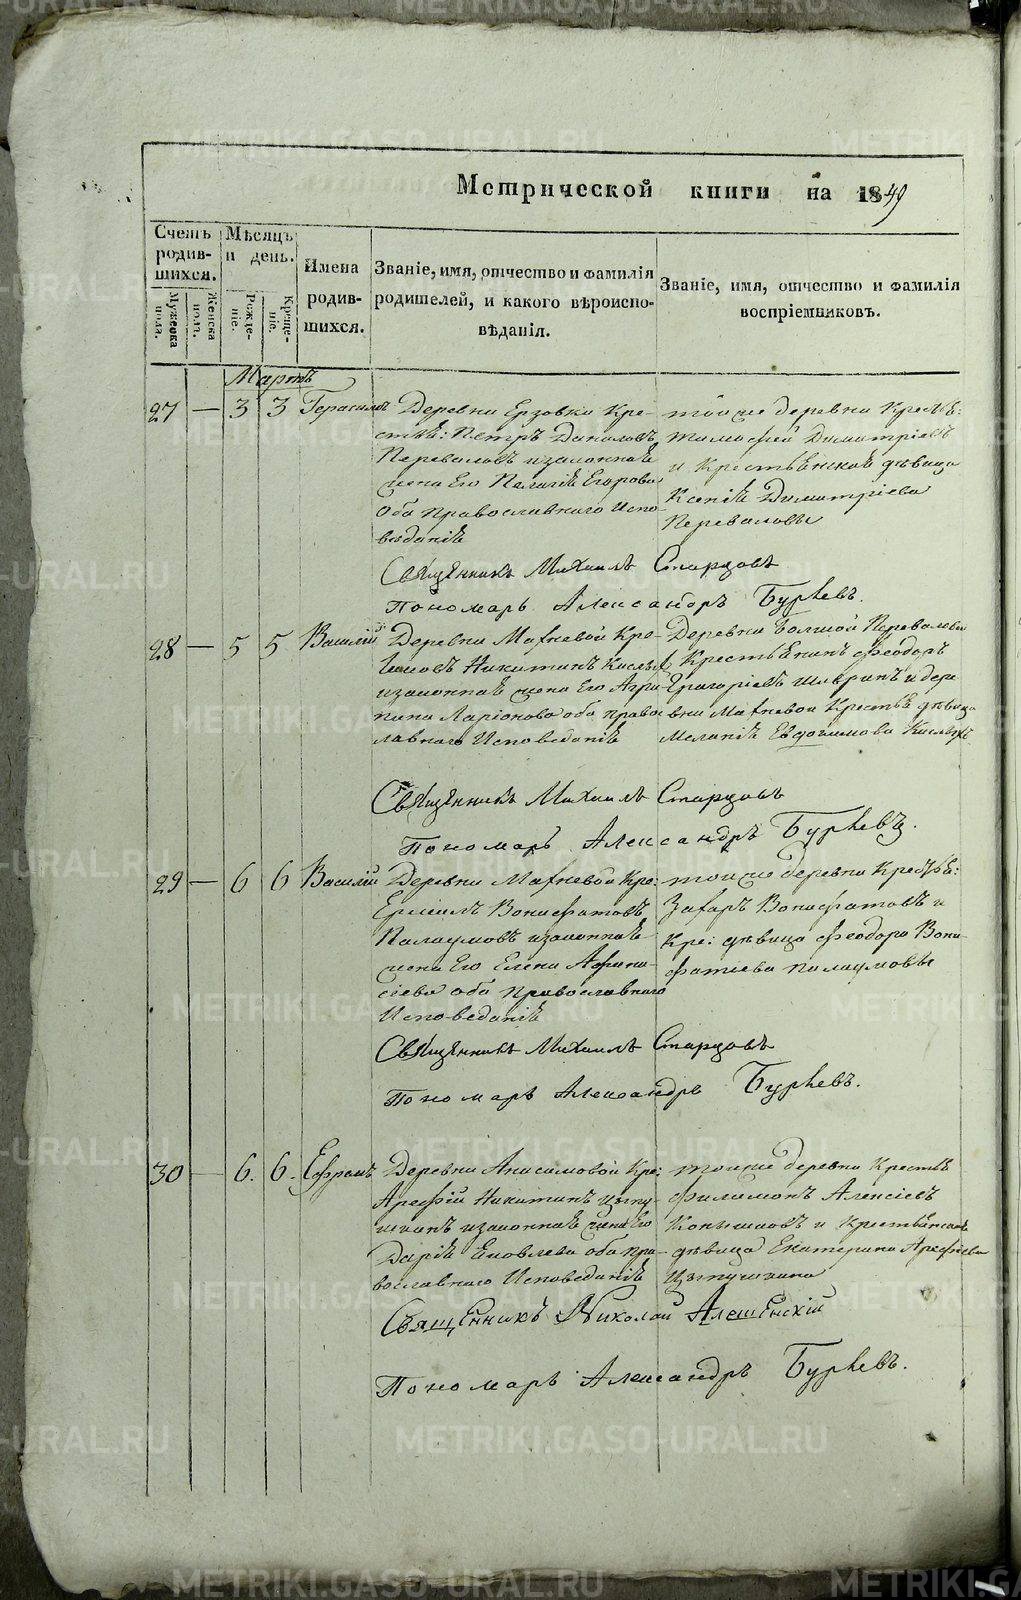 Метрической книги на 1849
Счетъ родив-шихся.
Мѣсяцъ и день.
Имена родив-шихся.
Званіе, имя, отчество и фамилія родителей, и какого вѣроиспо-вѣданія.
Званіе, имя, отчество и фамилія воспріемниковъ.
Мужеска пола.
Женска пола.
Рожде-ніе.
Креще-ніе.
Мартъ
27 — 3 3 Герасимъ
Деревни Ерзовки Кре-
стья: Петръ Даниловъ
Переваловъ изаконная
жена Его Пелагія Егорова
Оба православнаго Испо-
веданія
тойже деревни Крестья:
Тимофей Димитріевъ
и Крестьянская дѣвица
Ксенія Димитріева
Перевалова
Священникъ Михаилъ Старцовъ
Пономарь Александръ Бурѣевъ.
28 — 5 5 Василій
Деревни Махневой Кре-
Никитинъ Кислыхъ
изаконная жена Его Агри-
пина Ларіонова оба право-
лавнаго Исповеданія
Деревни Болшой Переваловы
Крестьянинъ Феодоръ
Григоріевъ и дере
вни Махневой Крестья дѣвица
Меланія Евдокимова Кислыхъ
Священникъ Михаилъ Старцовъ
Пономарь Александръ Бурѣевъ.
29 — 6 6 Василій
Деревни Махневой Кре:
Ермилъ Вонифатовъ
Палаумовъ изаконная
жена Его Елена Афана-
сіева оба православнаго
Исповеданія
тойже деревни Крестья:
Захаръ Вонифатовъ и
Кре: дѣвица Феодора Вони-
фатіева Палаумова
Священникъ Михаилъ Старцовъ
Пономарь Александръ Бурѣевъ.
30 — 6. 6. Ефремъ
Деревни Анисимовой Кре:
Арефій Никитинъ Цепу-
шкинъ изаконная жена Его
Дарія Яковлева оба пра-
вославнаго Исповеданія
тойже деревни Крестья
Филимонъ Алексіевъ
Конышовъ и Крестьянская
дѣвица Екатерина Арефіева
Цепушкина
Священникъ Николай
Пономарь Александръ Бурѣевъ.
METRIKI.GASO-URAL.RU